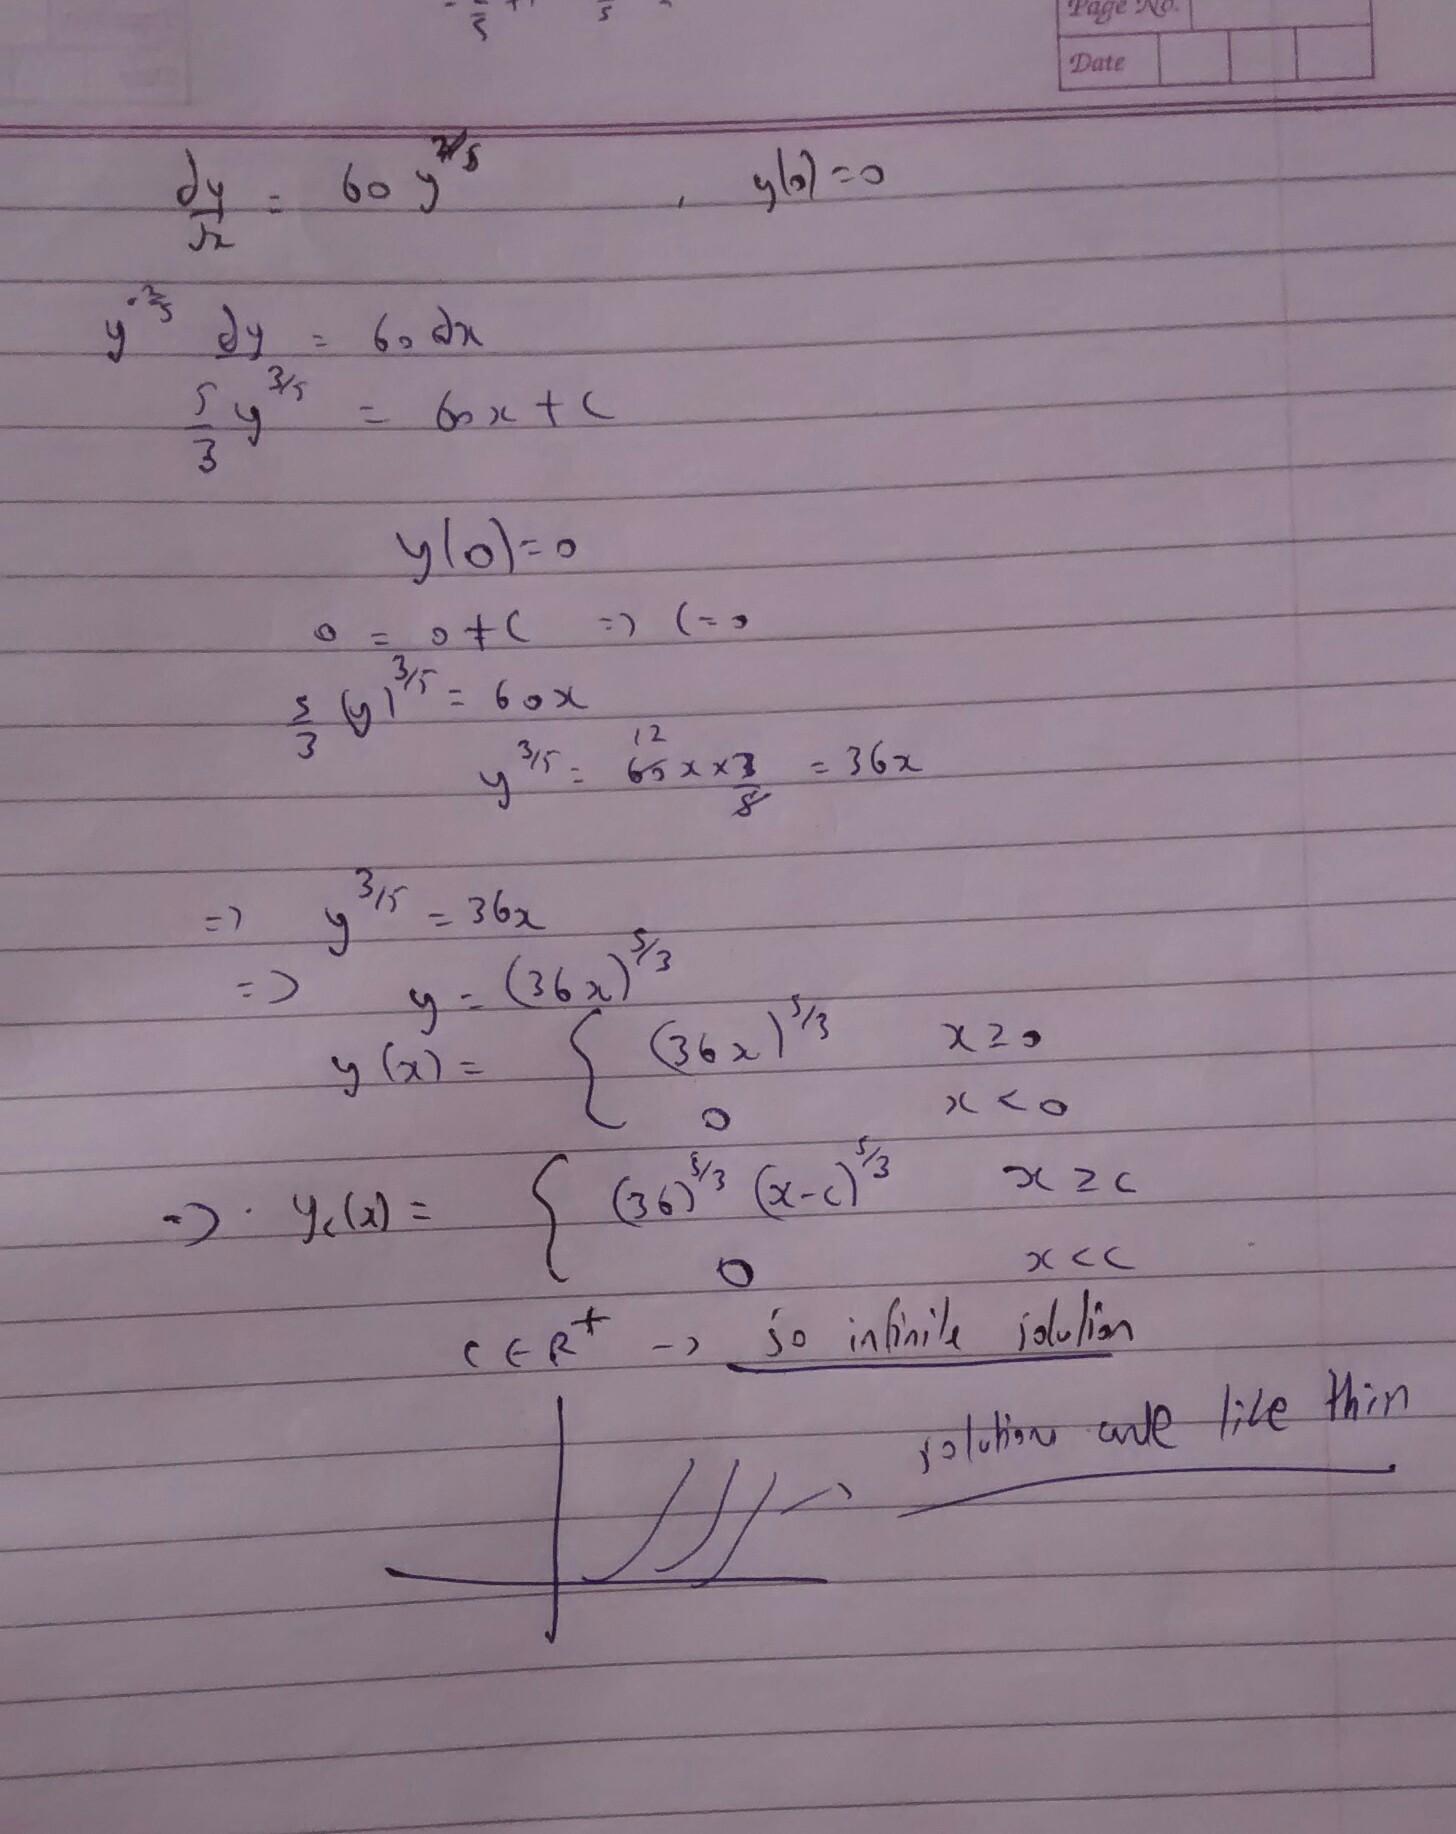 Page No.
Date
dy/dx = 60 y^2/5 , y(0)=0
y^-2/5 dy = 60 dx
5/3 y^3/5 = 60x + C
y(0)=0
0 = 0 + C => C=0
5/3 (y)^3/5 = 60x
y^3/5 = 60x × 3/5 = 36x
12
=> y^3/5 = 36x
=> y = (36x)^5/3
y(x) = { (36x)^5/3 x ≥ 0
0 x < 0
=> y_c(x) = { (36)^5/3 (x-c)^5/3 x ≥ c
0 x < c
c ∈ R^+ -> so infinite solution
solution are like thin